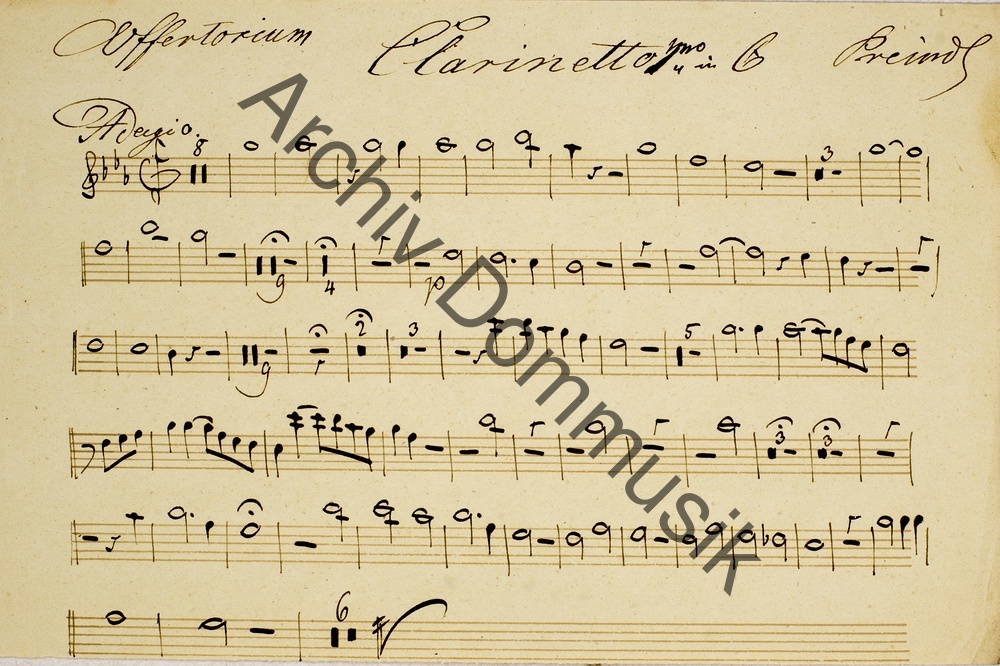 Offertorium Clarinetto 1mo in C Preindl
Adagio.
8 3
9 4 p
9 2 3 5
3 3
6
Archiv Dommusik